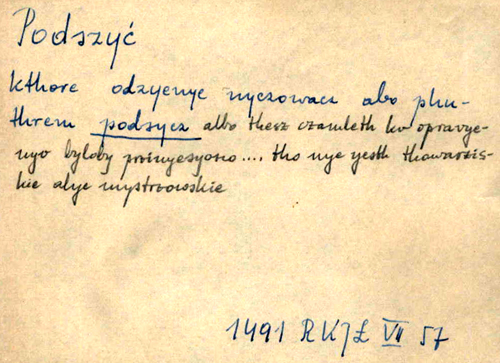 Podszyć
kthore odzyenye nyczowacz abo phu-
threm podszycz albo thesz czamleth ku opravye-
nyv byloby przinyesyono.... tho nye yesth thowarzis-
kie alye mystrzowskie
1491 RKJŁ VII 57